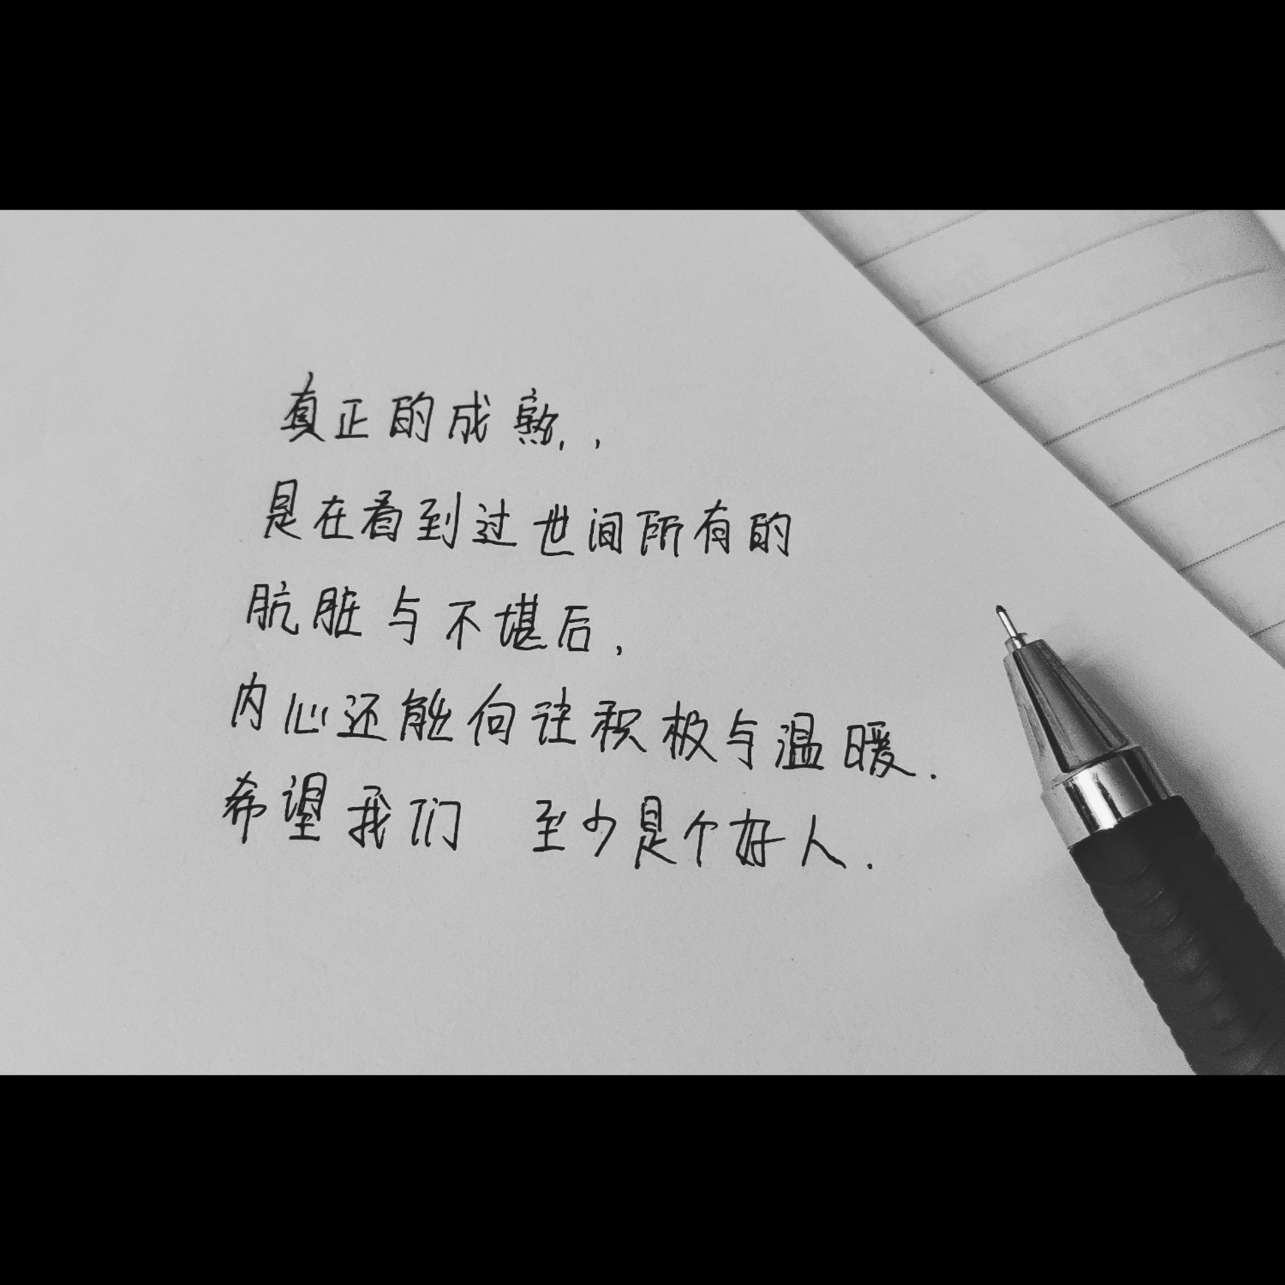 真正的成熟,
是在看到过世间所有的
肮脏与不堪后,
内心还能向往积极与温暖.
希望我们 至少是个好人.